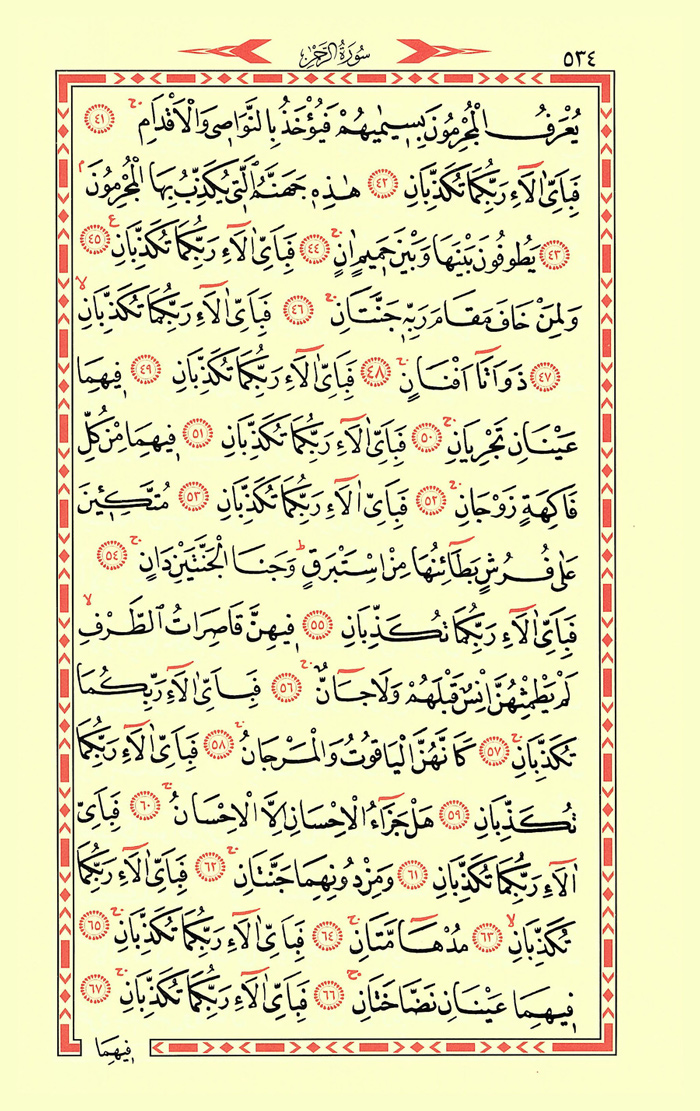 ٥٣٤ سُورَةُ الرَّحْمٰنِ
يُعْرَفُ الْمُجْرِمُونَ بِسِيمٰيهُمْ فَيُؤْخَذُ بِالنَّوَاصِي وَالْاَقْدَامِۚ ﴿٤١﴾
فَبِاَيِّ اٰلَٓاءِ رَبِّكُمَا تُكَذِّبَانِ ﴿٤٢﴾ هٰذِهٖ جَهَنَّمُ الَّتٖي يُكَذِّبُ بِهَا الْمُجْرِمُونَۘ
﴿٤٣﴾ يَطُوفُونَ بَيْنَهَا وَبَيْنَ حَمٖيمٍ اٰنٍۚ ﴿٤٤﴾ فَبِاَيِّ اٰلَٓاءِ رَبِّكُمَا تُكَذِّبَانِ ع ﴿٤٥﴾
وَلِمَنْ خَافَ مَقَامَ رَبِّهٖ جَنَّتَانِۚ ﴿٤٦﴾ فَبِاَيِّ اٰلَٓاءِ رَبِّكُمَا تُكَذِّبَانِۙ
﴿٤٧﴾ ذَوَاتَٓا اَفْنَانٍۚ ﴿٤٨﴾ فَبِاَيِّ اٰلَٓاءِ رَبِّكُمَا تُكَذِّبَانِ ﴿٤٩﴾ فٖيهِمَا
عَيْنَانِ تَجْرِيَانِۚ ﴿٥٠﴾ فَبِاَيِّ اٰلَٓاءِ رَبِّكُمَا تُكَذِّبَانِ ﴿٥١﴾ فٖيهِمَا مِنْ كُلِّ
فَاكِهَةٍ زَوْجَانِۚ ﴿٥٢﴾ فَبِاَيِّ اٰلَٓاءِ رَبِّكُمَا تُكَذِّبَانِ ﴿٥٣﴾ مُتَّكِـٖٔينَ
عَلٰى فُرُشٍ بَطَٓائِنُهَا مِنْ اِسْتَبْرَقٍؕ وَجَنَا الْجَنَّتَيْنِ دَانٍۚ ﴿٥٤﴾
فَبِاَيِّ اٰلَٓاءِ رَبِّكُمَا تُكَذِّبَانِ ﴿٥٥﴾ فٖيهِنَّ قَاصِرَاتُ الطَّرْفِۙ
لَمْ يَطْمِثْهُنَّ اِنْسٌ قَبْلَهُمْ وَلَا جَٓانٌّۚ ﴿٥٦﴾ فَبِاَيِّ اٰلَٓاءِ رَبِّكُمَا
تُكَذِّبَانِۚ ﴿٥٧﴾ كَاَنَّهُنَّ الْيَاقُوتُ وَالْمَرْجَانُۚ ﴿٥٨﴾ فَبِاَيِّ اٰلَٓاءِ رَبِّكُمَا
تُكَذِّبَانِ ﴿٥٩﴾ هَلْ جَزَٓاءُ الْاِحْسَانِ اِلَّا الْاِحْسَانُۚ ﴿٦٠﴾ فَبِاَيِّ
اٰلَٓاءِ رَبِّكُمَا تُكَذِّبَانِ ﴿٦١﴾ وَمِنْ دُونِهِمَا جَنَّتَانِۚ ﴿٦٢﴾ فَبِاَيِّ اٰلَٓاءِ رَبِّكُمَا
تُكَذِّبَانِۙ ﴿٦٣﴾ مُدْهَٓامَّتَانِۚ ﴿٦٤﴾ فَبِاَيِّ اٰلَٓاءِ رَبِّكُمَا تُكَذِّبَانِۚ ﴿٦٥﴾
فٖيهِمَا عَيْنَانِ نَضَّاخَتَانِۚ ﴿٦٦﴾ فَبِاَيِّ اٰلَٓاءِ رَبِّكُمَا تُكَذِّبَانِۚ ﴿٦٧﴾
فٖيهِمَا